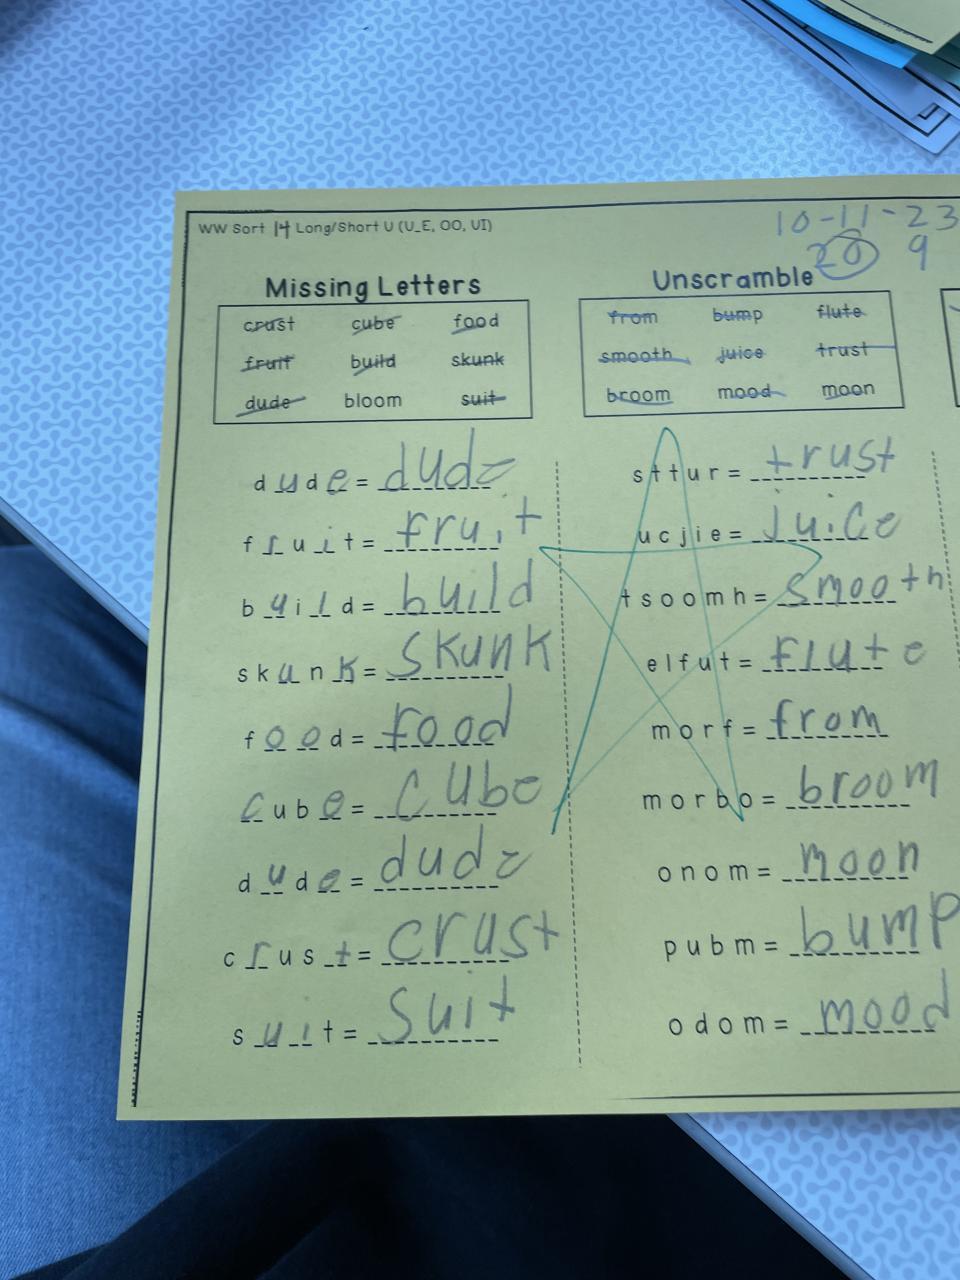 WW Sort 14 Long/Short U (U_E, OO, UI)
10-11-23
20 9
Missing Letters
crust cube food
fruit build skunk
dude bloom suit
d u d e = dude
f r u i t = fruit
b u i l d = build
s k u n k = skunk
f o o d = food
c u b e = cube
d u d e = dude
c r u s t = crust
s u i t = suit
Unscramble
from bump flute
smooth juice trust
broom mood moon
s t t u r = trust
u c j i e = juice
t s o o m h = smooth
e l f u t = flute
m o r f = from
m o r b o = broom
o n o m = moon
p u b m = bump
o d o m = mood